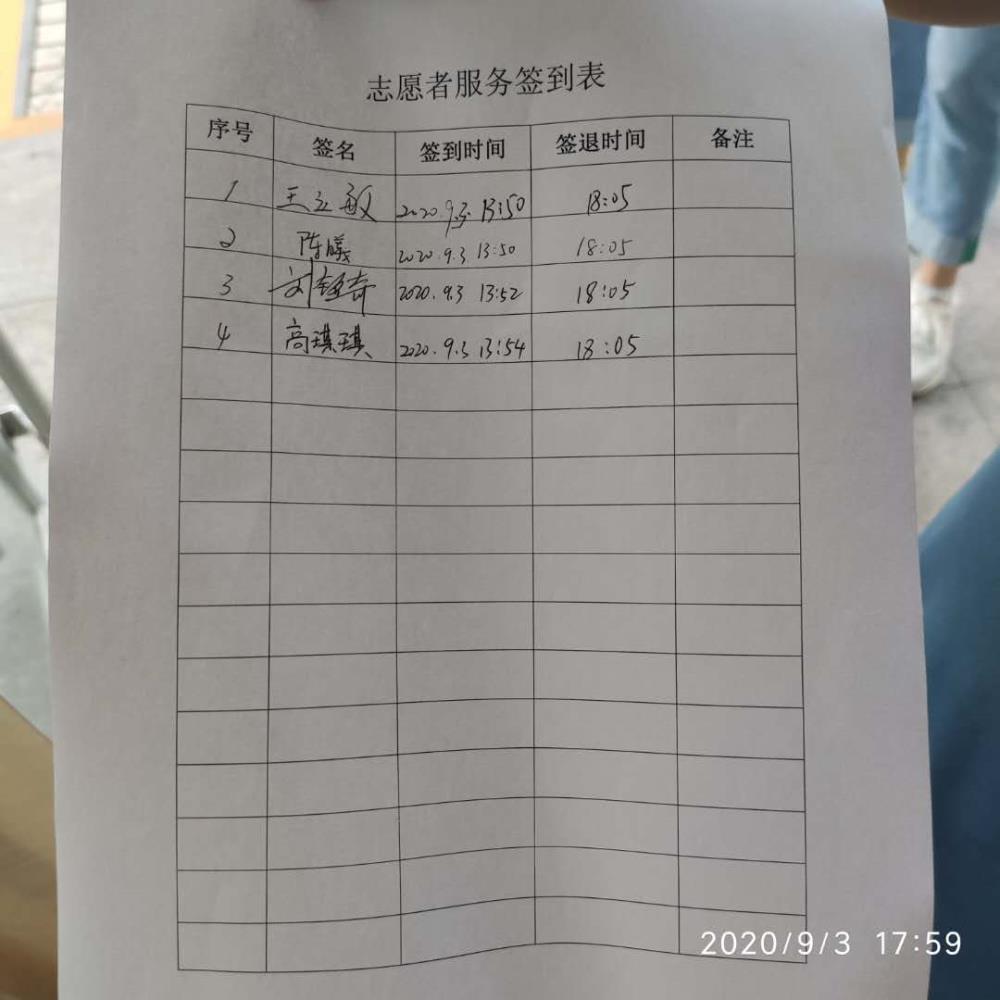 志愿者服务签到表
序号 签名 签到时间 签退时间 备注
1 王立敏 2020.9.3. 13:50 18:05
2 陈曦 2020.9.3. 13:50 18:05
3 刘 奇 2020.9.3 13:52 18:05
4 高琪琪 2020.9.3 13:54 18:05
2020/9/3 17:59